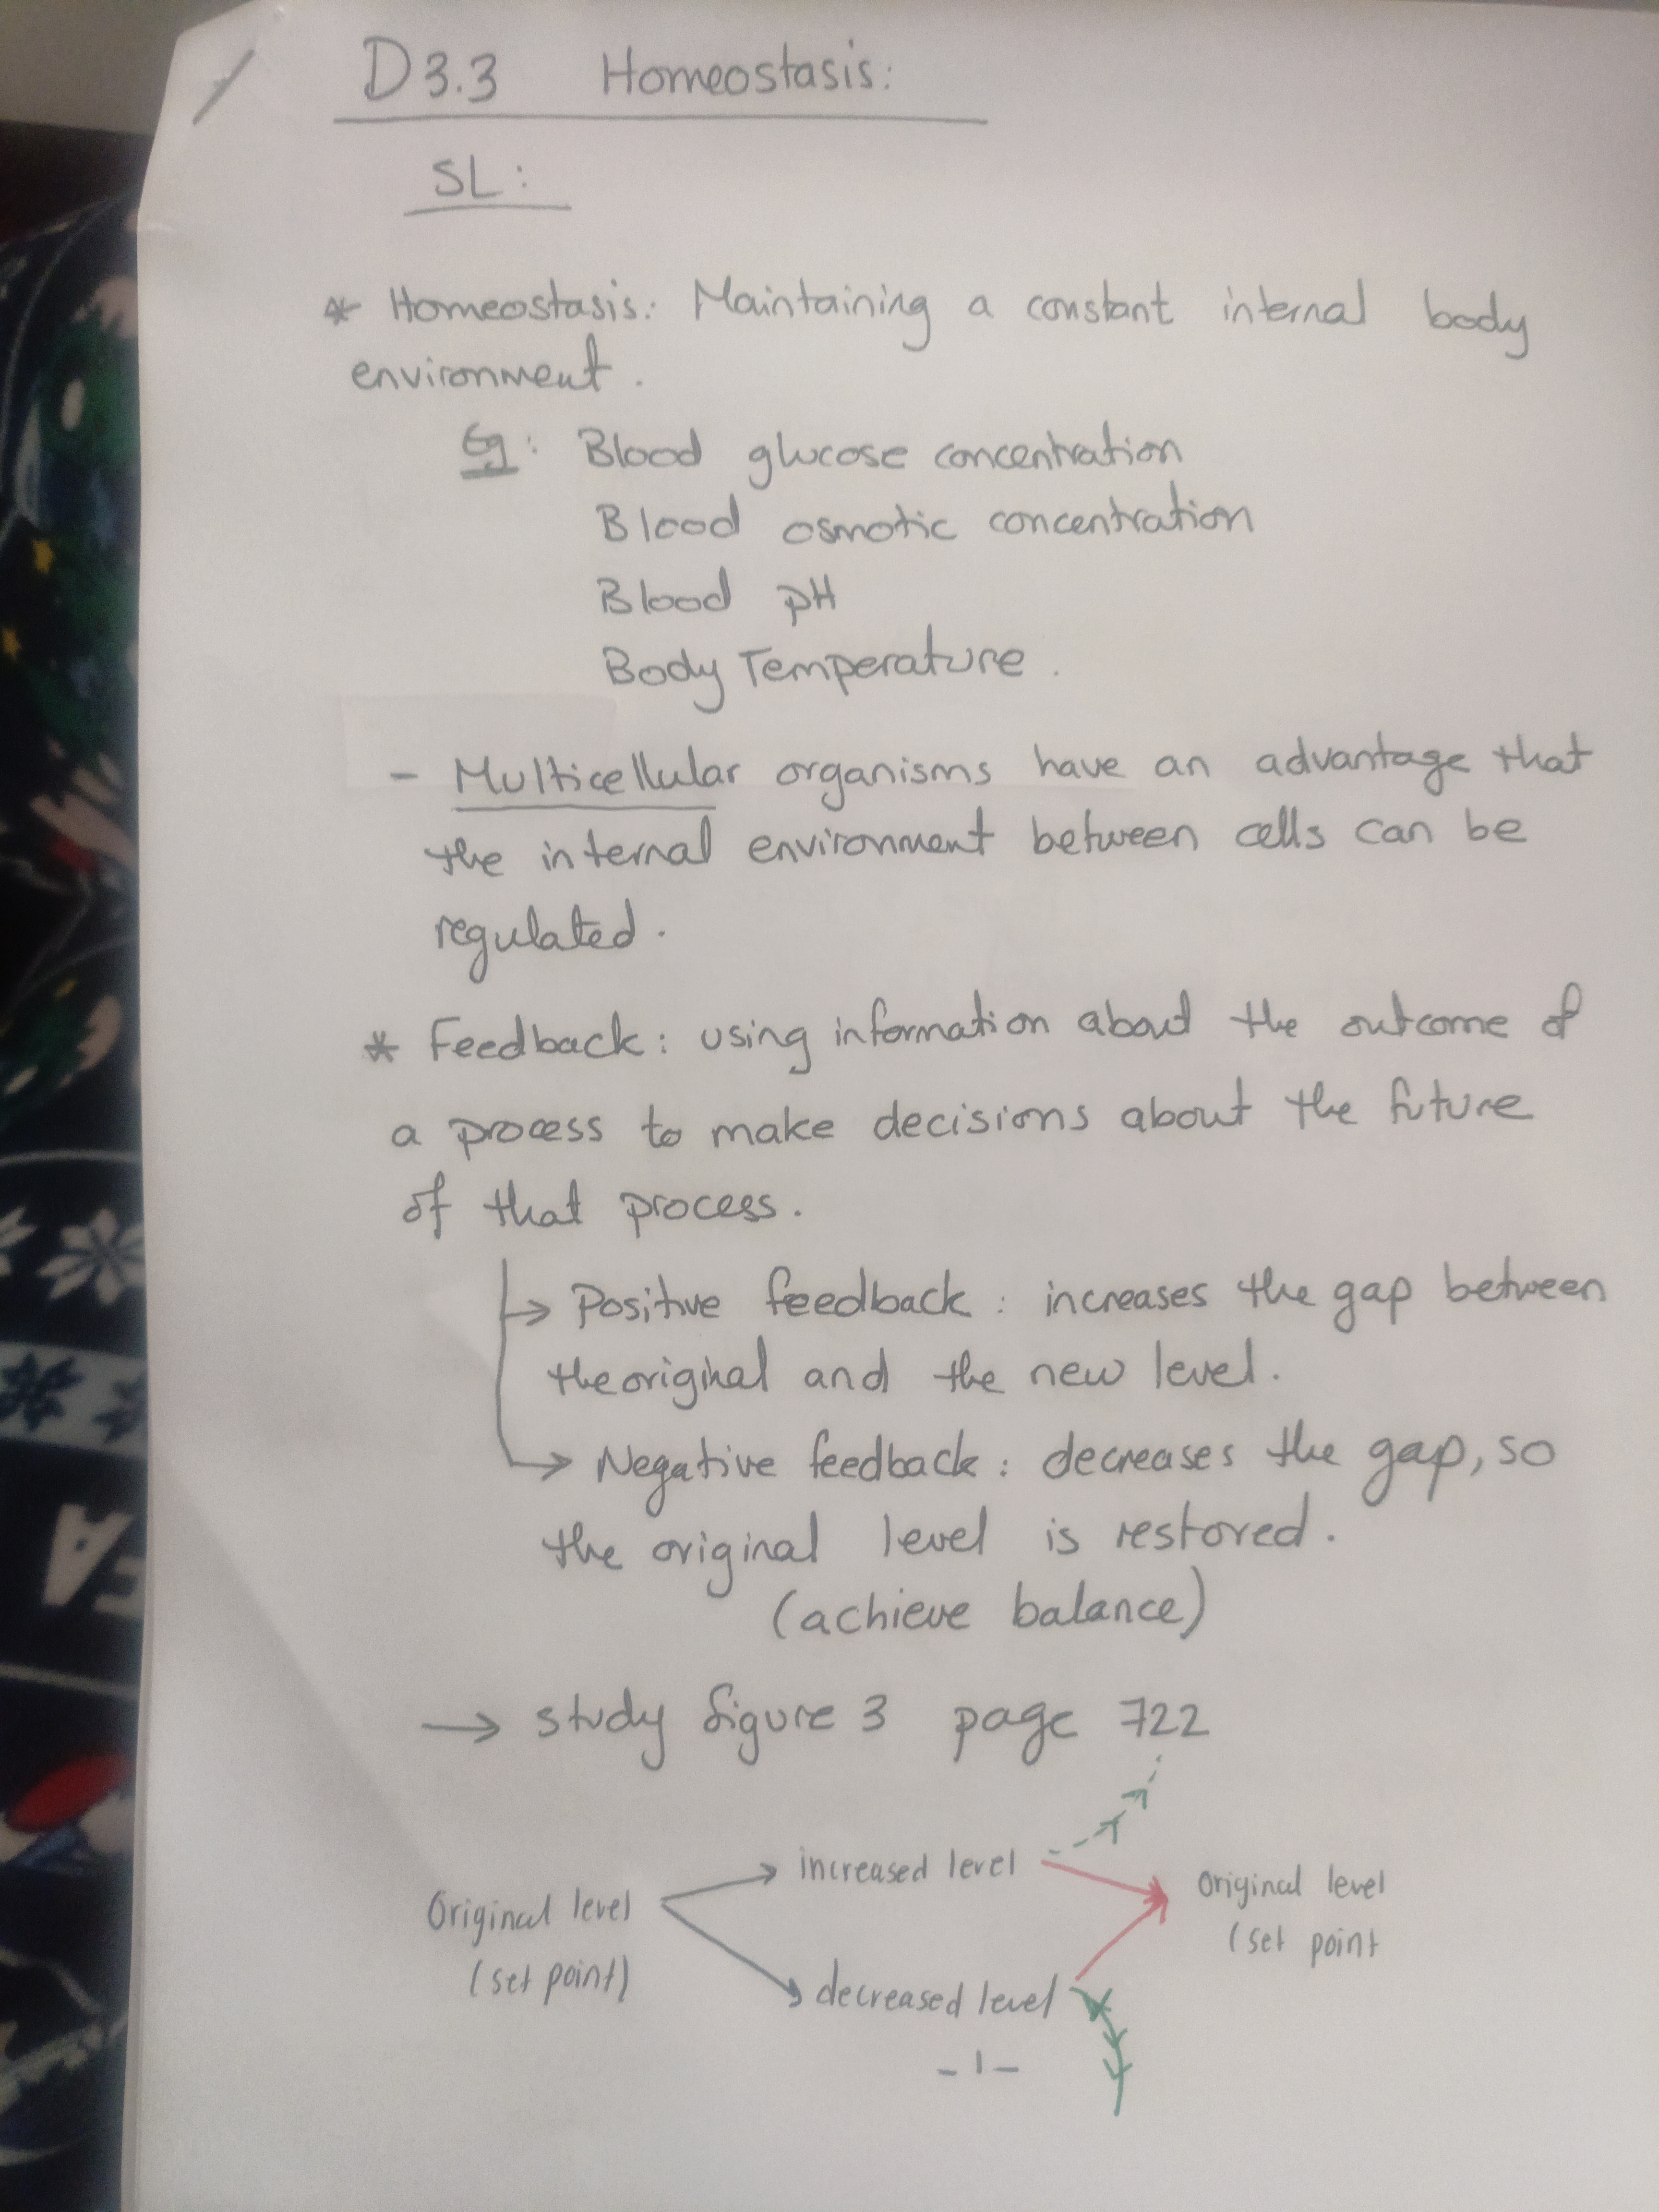 D3.3 Homeostasis:
SL:
* Homeostasis: Maintaining a constant internal body
environment.
Eg: Blood glucose concentration
Blood osmotic concentration
Blood pH
Body Temperature.
- Multicellular organisms have an advantage that
the internal environment between cells can be
regulated.
* Feedback: using information about the outcome of
a process to make decisions about the future
of that process.
→ Positive feedback: increases the gap between
the original and the new level.
→ Negative feedback: decreases the gap, so
the original level is restored.
(achieve balance)
→ study figure 3 page 722
increased level
Original level
(set point)
Original level
(set point
decreased level
-1-